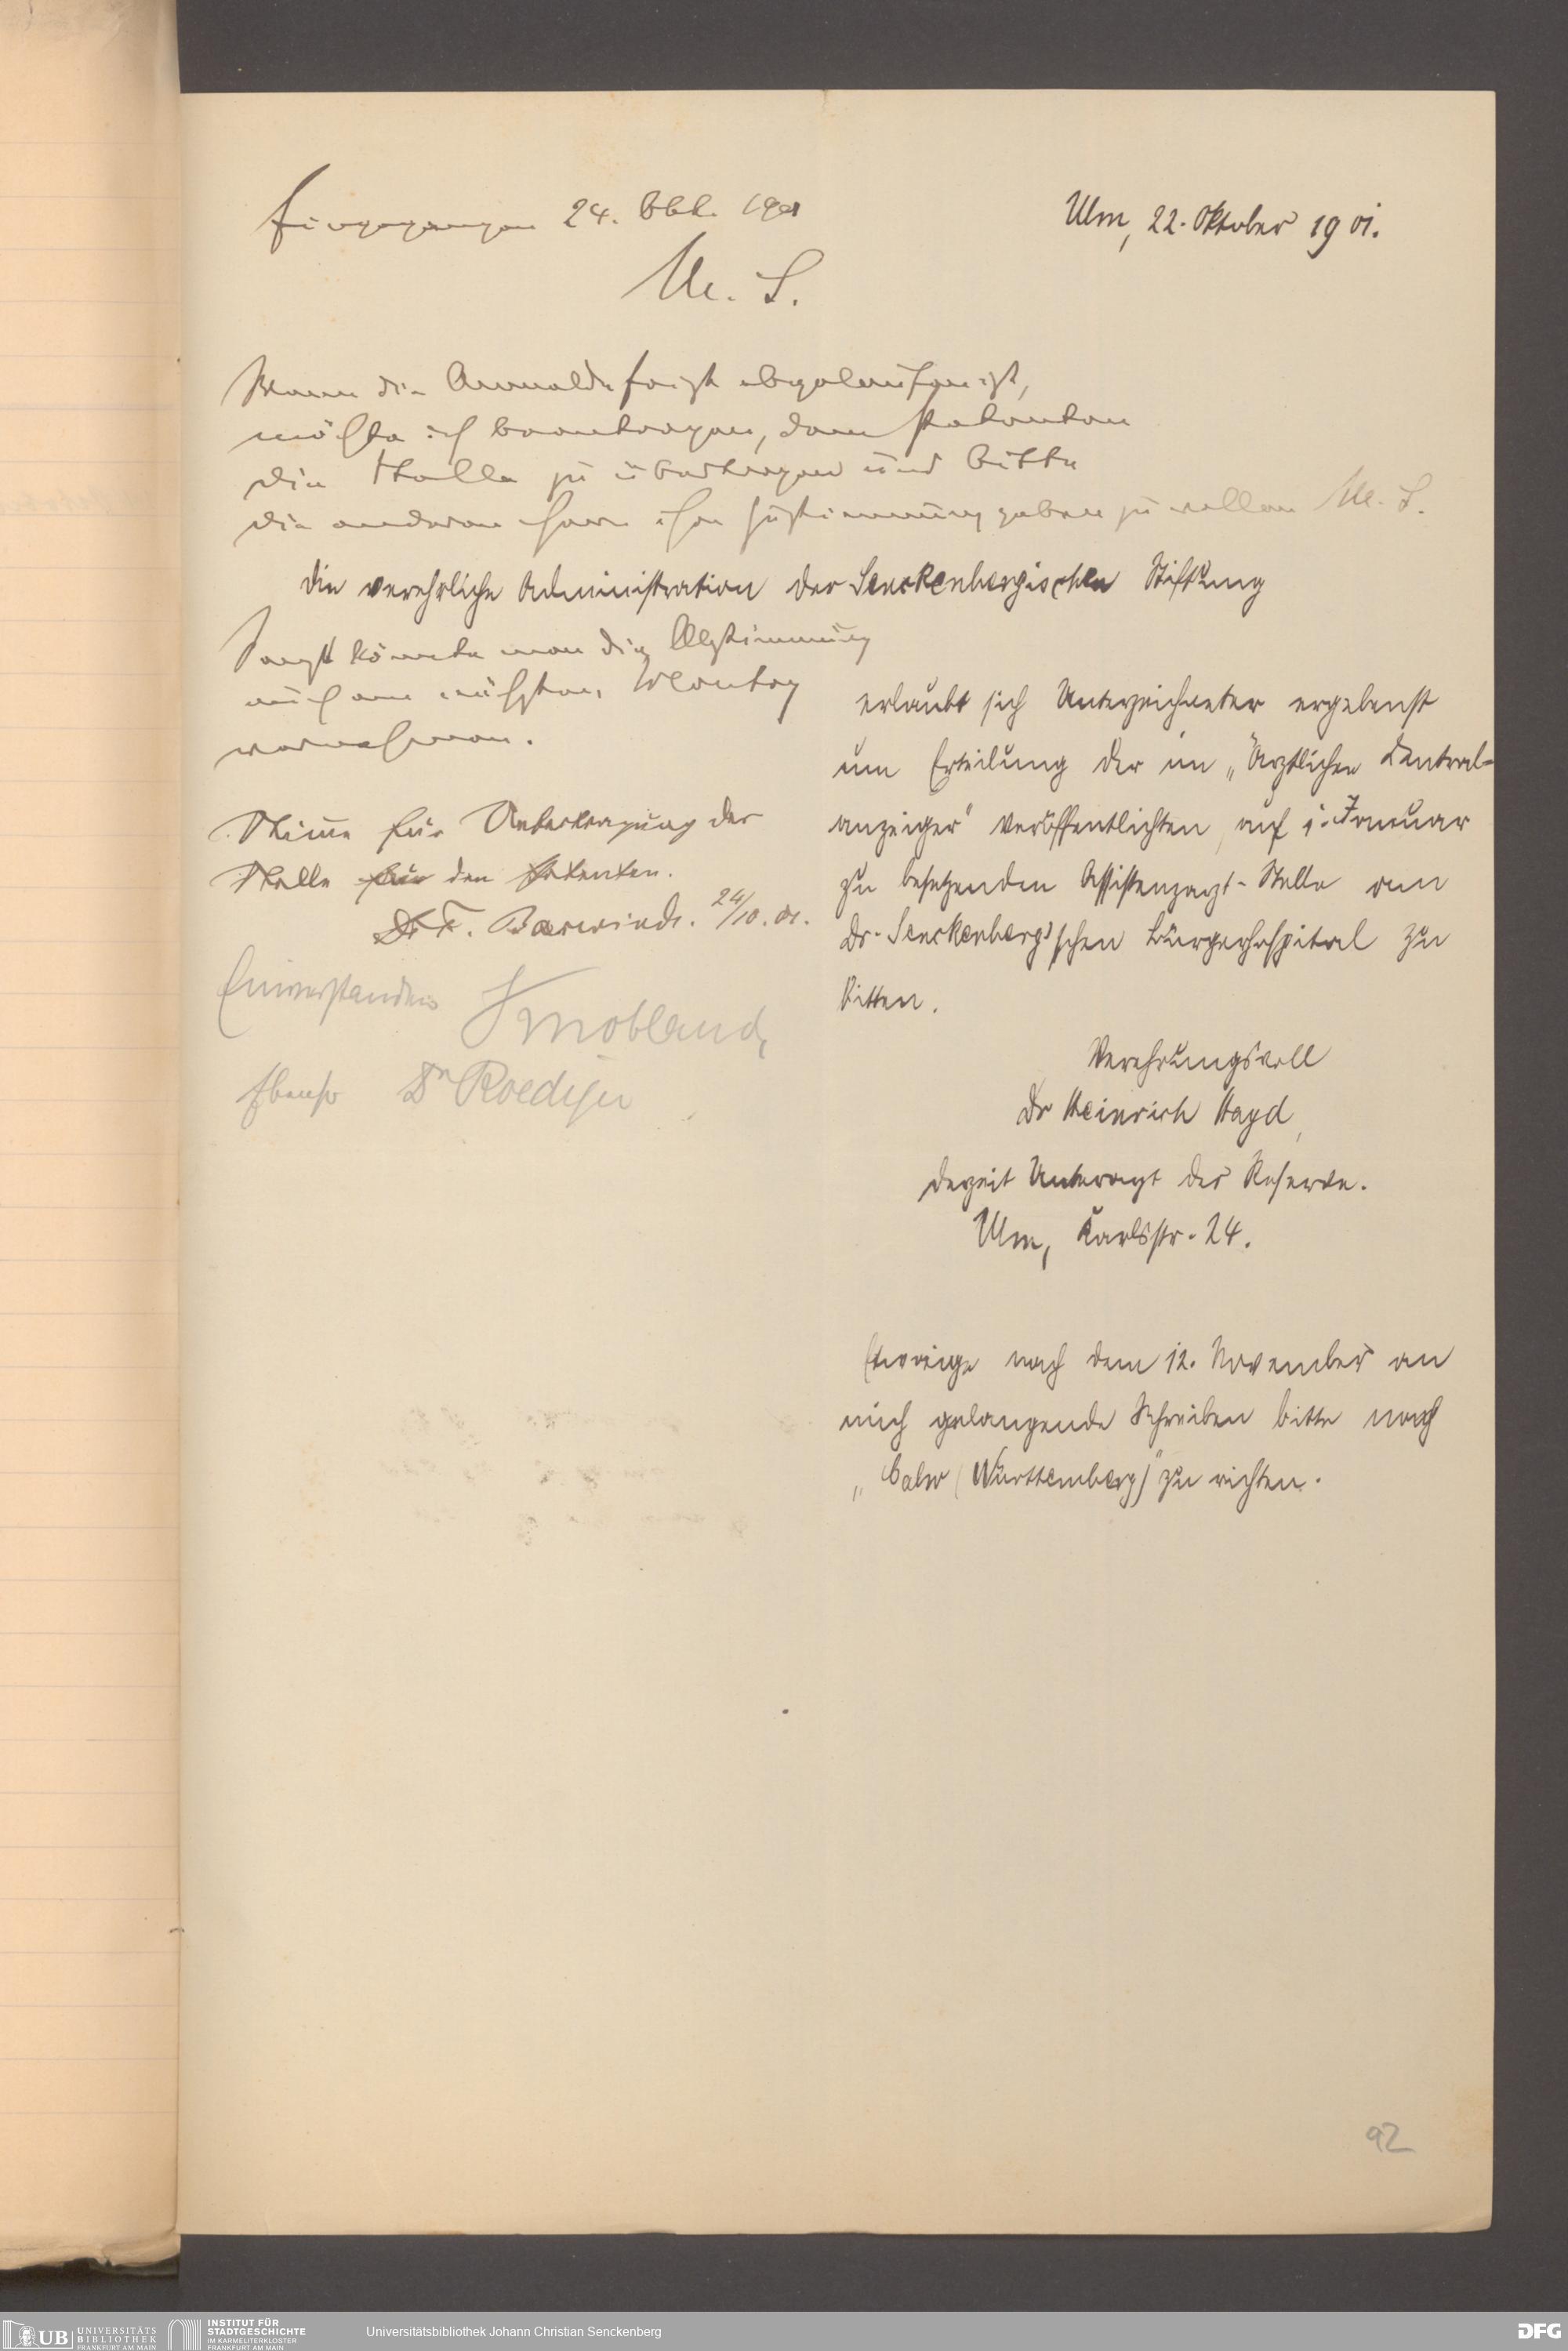 Eingegangen 24. Okt. 1901
M. S.
Ulm, 22. Oktober 1901.
Wenn die Anmeldefrist abgelaufen ist,
möchte ich beantragen, dem Petenten
die Stelle zu übertragen und bitte
die anderen Herrn ihre Zustimmung geben zu wollen M. S.
Die verehrliche Administration der Senckenbergischen Stiftung
Sonst könnte man die Abstimmung
auch am nächsten Montag
vornehmen.
Stimme für Uebertragung der
Stelle für den Petenten.
Dr F. Baerwindt. 24/10. 01.
Einverstanden Knoblauch
Ebenso Dr Roediger
erlaubt sich Unterzeichneter ergebenst
um Erteilung der im „Ärztlichen Central-
anzeiger" veröffentlichten, auf 1. Januar
zu besetzenden Assistenzarzt-Stelle am
Dr. Senckenberg'schen Bürgerhospital zu
bitten.
Verehrungsvoll
Dr Heinrich Hayd,
derzeit Unterarzt der Reserve.
Ulm, Karlsstr. 24.
Etwaige nach dem 12. November an
mich gelangende Schreiben bitte nach
„Calw (Württemberg)" zu richten.
92
UB UNIVERSITÄTS
BIBLIOTHEK
FRANKFURT AM MAIN
INSTITUT FÜR
STADTGESCHICHTE
IM KARMELITERKLOSTER
FRANKFURT AM MAIN
Universitätsbibliothek Johann Christian Senckenberg
DFG